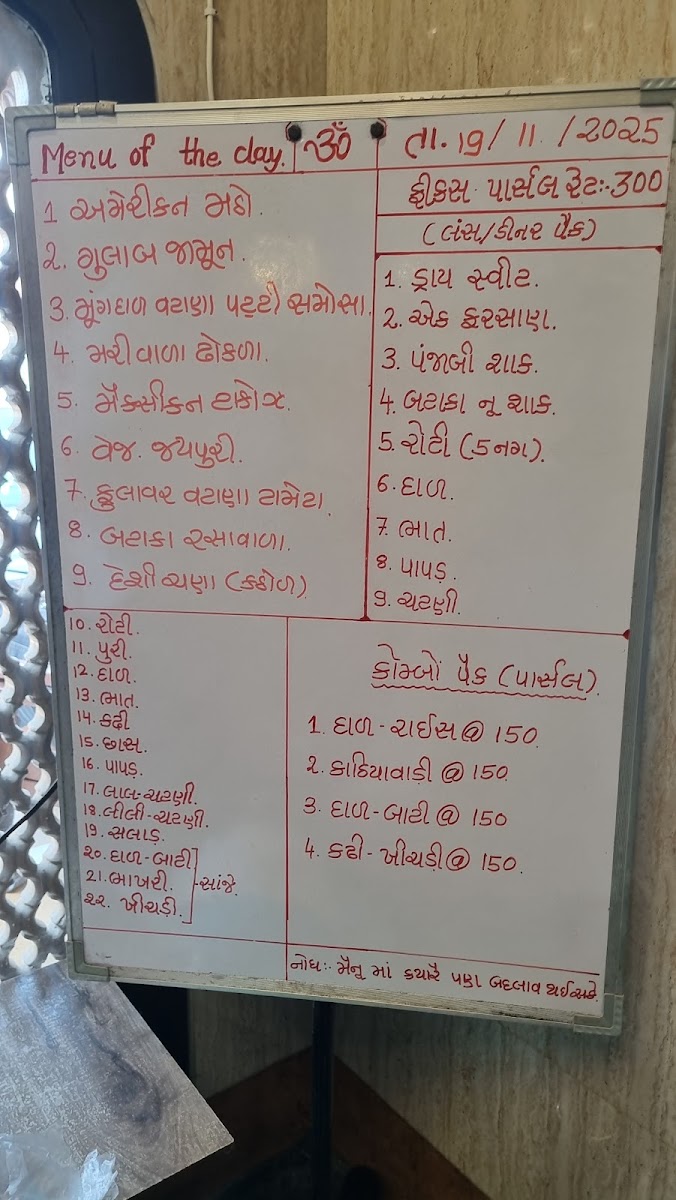 Menu of the day.
ૐ
તા. 19/11/2025
1 અમેરીકન મઠો.
2. ગુલાબ જામૂન.
3. મૂંગદાળ વટાણા પટ્ટી સમોસા.
4. મરીવાળા ઢોકળા.
5. મૅક્સીકન ટાકોઝ.
6. વેજ. જયપુરી.
7. ફુલાવર વટાણા ટામેટા.
8. બટાકા રસાવાળા.
9. દેશી ચણા (કઠોળ)
ફીકસ પાર્સલ રેટઃ-300
(લંસ/ડીનર પૅક)
1. ડ્રાય સ્વીટ.
2. એક ફરસાણ.
3. પંજાબી શાક.
4. બટાકા નૂ શાક.
5. રોટી (5 નગ).
6. દાળ.
7. ભાત.
8. પાપડ.
9. ચટણી.
10. રોટી.
11. પુરી.
12. દાળ.
13. ભાત.
14. કઢી
15. છાસ.
16. પાપડ.
17. લાલ-ચટણી.
18. લીલી-ચટણી.
19. સલાડ.
20. દાળ-બાટી
21. ભાખરી. -સાંજે.
22. ખીચડી.
કોમ્બો પૅક (પાર્સલ).
1. દાળ-રાઈસ @ 150.
2. કાઠિયાવાડી @ 150
3. દાળ-બાટી @ 150
4. કઢી-ખીચડી @ 150.
નોધઃ- મૅનૂ માં ક્યારૅ પણ બદલાવ થઈ સકે.